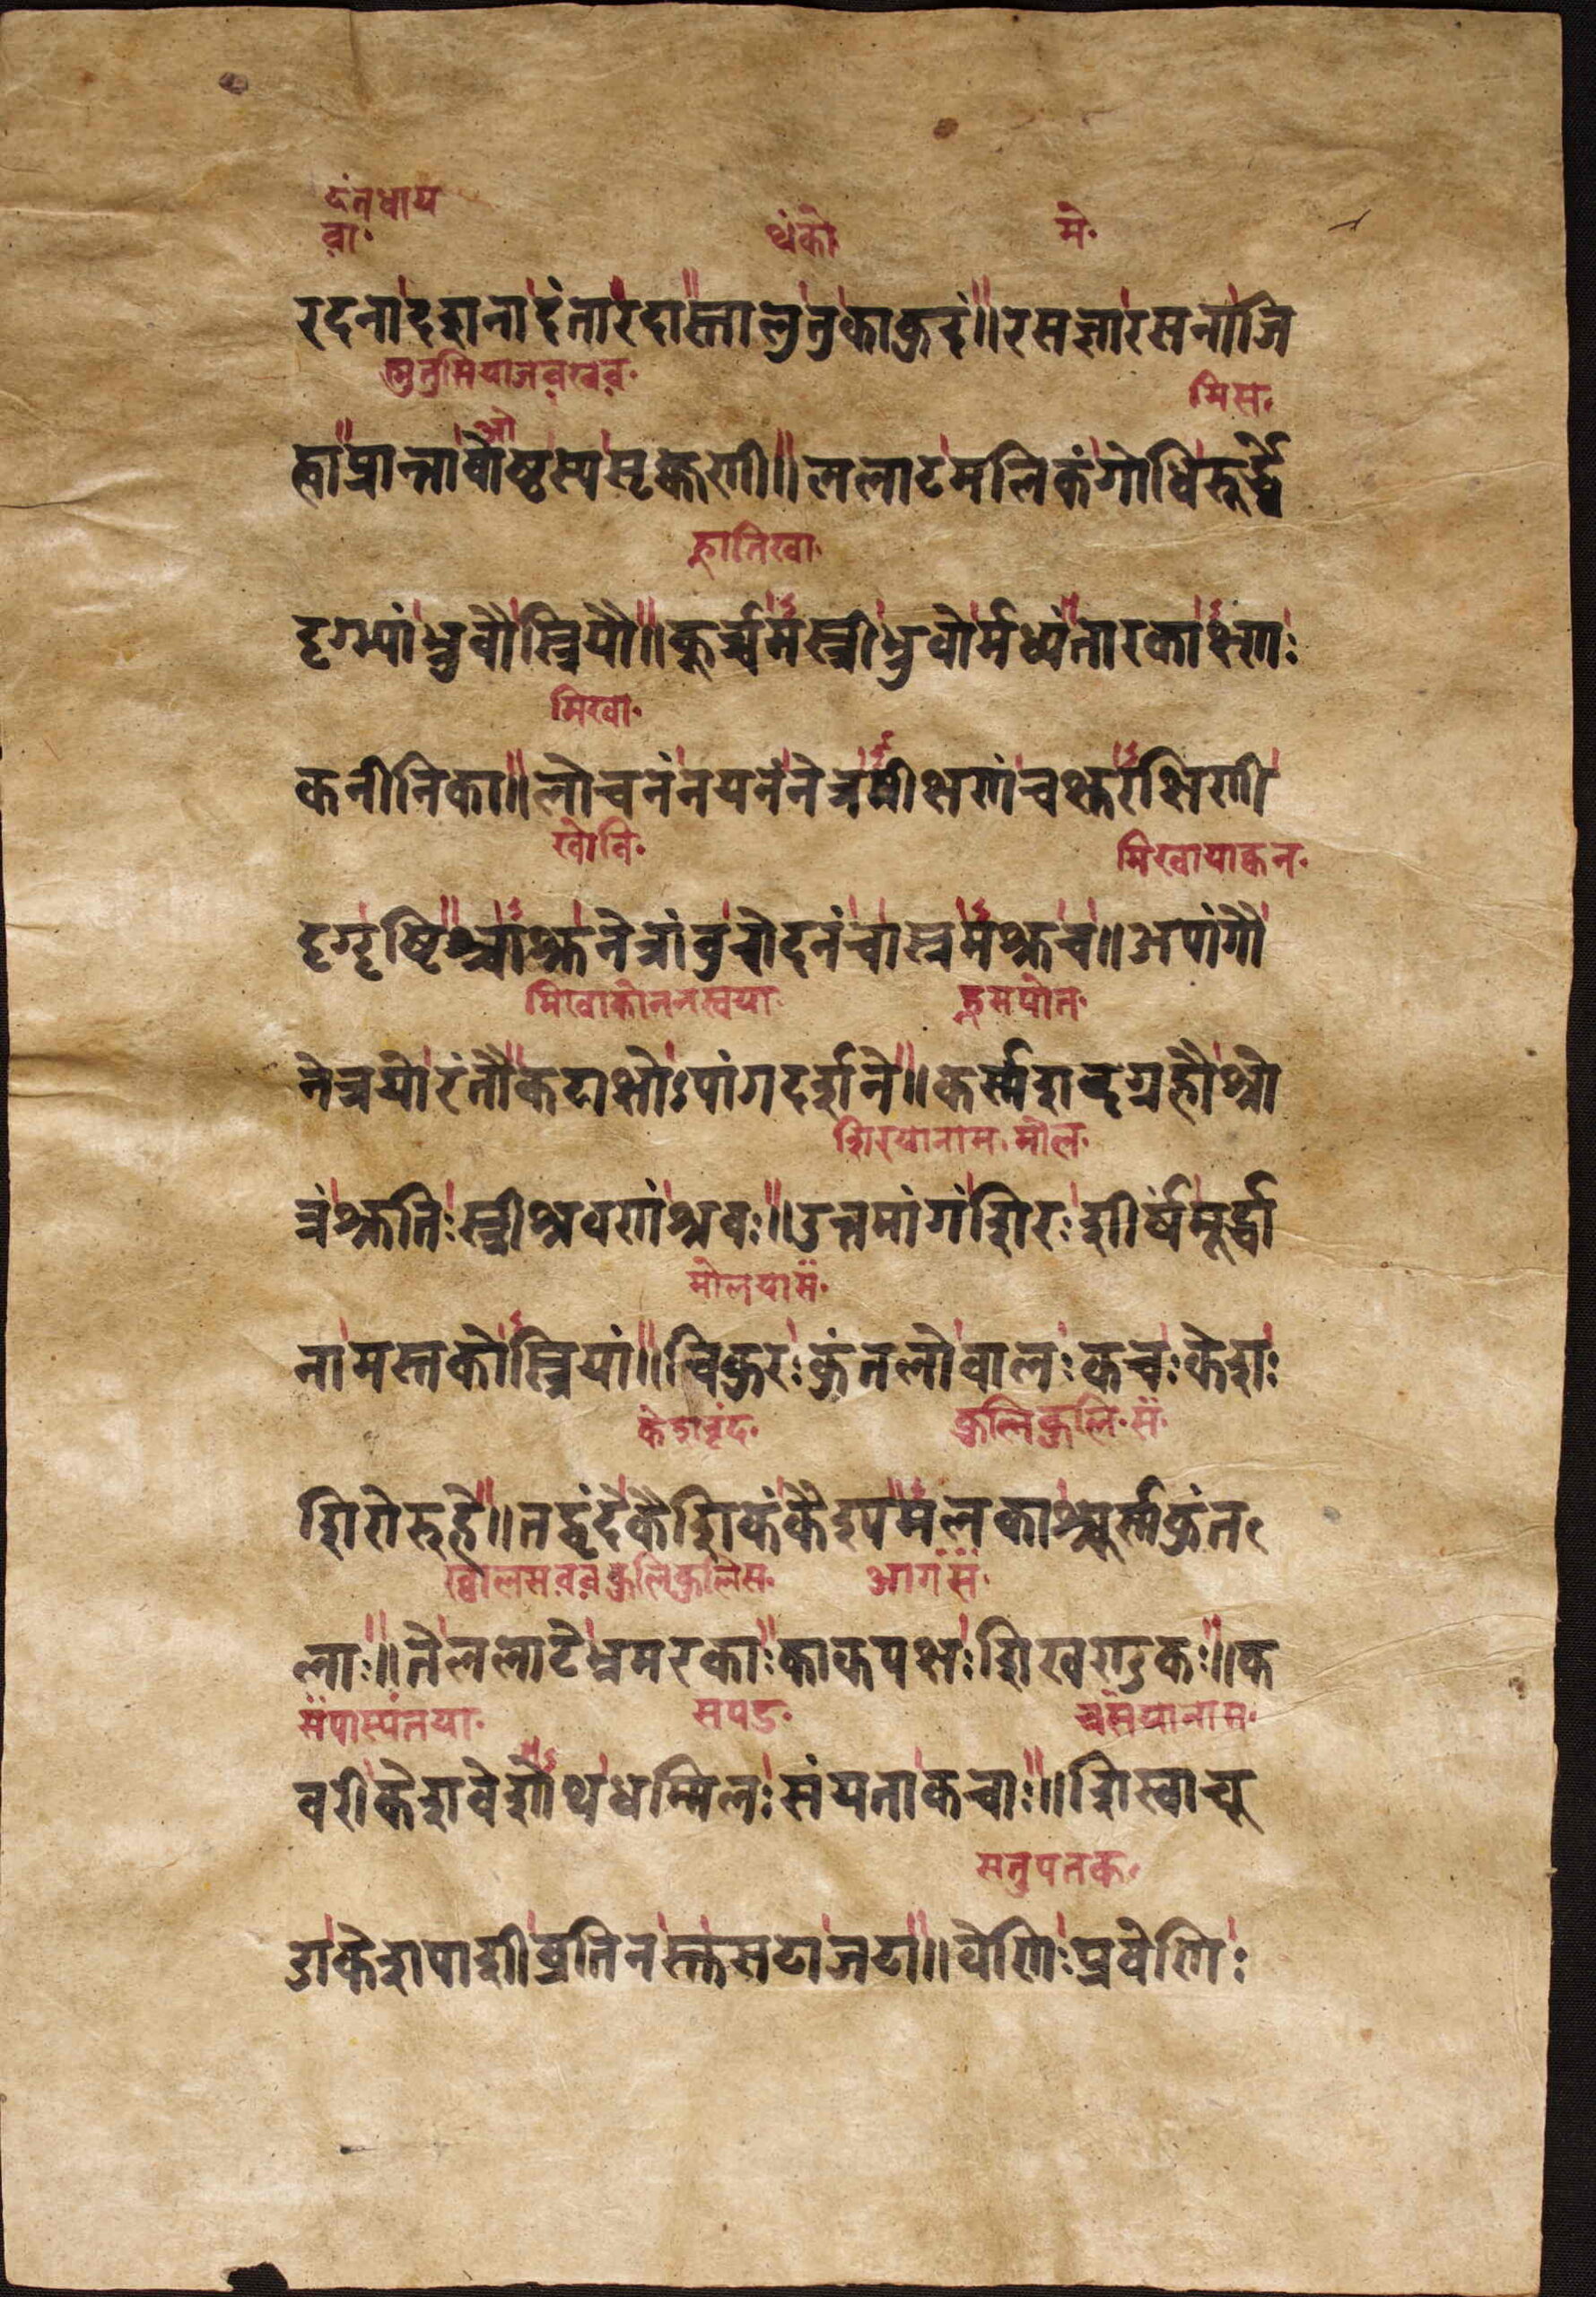 दंतधाय
वा॰ थंको मे॰
रदनादशनादंतारदास्तालुतुकाकुदं॥रसज्ञारसनाजि
मिस॰
ह्वाप्रान्तावोष्ठस्यसृक्कणी॥ललाटमलिकंगोधिरूर्द्ध्वे
ओ
दृग्भ्यांभ्रुवौस्त्रियौ॥कूर्च्चमस्त्रीभ्रुवोर्मध्यंतारकाक्ष्णः
मिखा॰
कनीनिका॥लोचनंनयनंनेत्रमीक्षणंचक्षुरक्षिणी
खोबि॰ मिखायाकुन॰
दृग्दृष्टिश्चाश्रुनेत्रांवुरोदनंचास्रमश्रुच॥अपांगौ
मिखाकोननस्वया
नेत्रयोरंतौकटाक्षोऽपांगदर्शने॥कर्ण्णशब्दग्रहौश्रो
शिरयानाम॰मोल॰
त्रंश्रुतिःस्त्रीश्रवणंश्रवः॥उत्तमांगंशिरःशीर्षंमूर्द्धा
मोलयासं॰
नामस्तकोस्त्रियां॥चिकुरःकुंतलोवालःकचःकेशः
केशवृंद॰ कुलिकुलि॰सं॰
शिरोरुहे॥तद्वृंदेकैशिकंकैश्यमलकाश्चूर्ण्णकुंत
आगंसं॰
लाः॥तेललाटेभ्रमरकाःकाकपक्षःशिखण्डकः॥क
सपड॰ चसंयानाम॰
वरीकेशवेशोथधम्मिलःसंयताकचाः॥शिखाचू
सतुपतक॰
डाकेशपाशीव्रतिनस्तुसटाजटा॥वेणिःप्रवेणिः